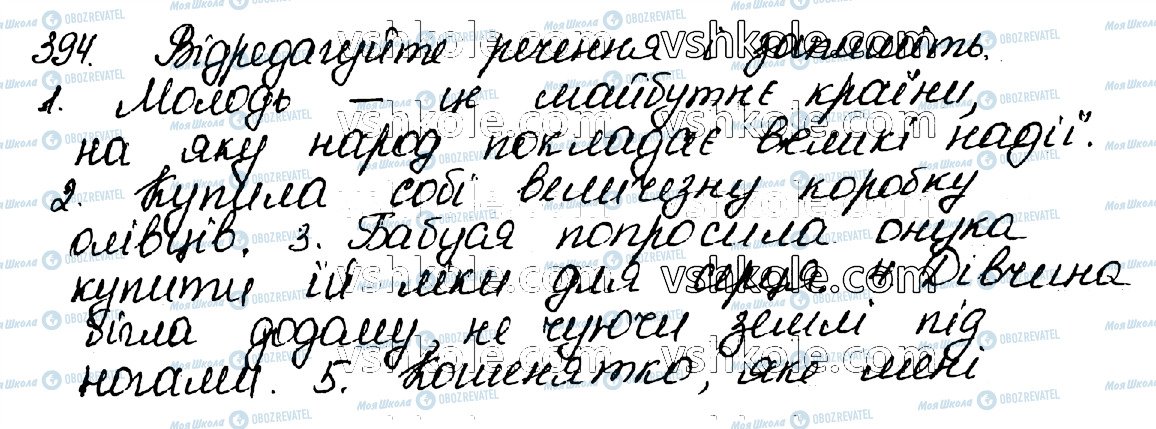 394. Відредагуйте речення і запишіть.
1. Молодь — це майбутнє країни,
на яку народ покладає великі надії.
2. Купила собі величезну коробку
олівців. 3. Бабуся попросила онука
купити їй ліки для серця 4 Дівчина
бігла додому, не чуючи землі під
ногами. 5. Кошенятко, яке мені